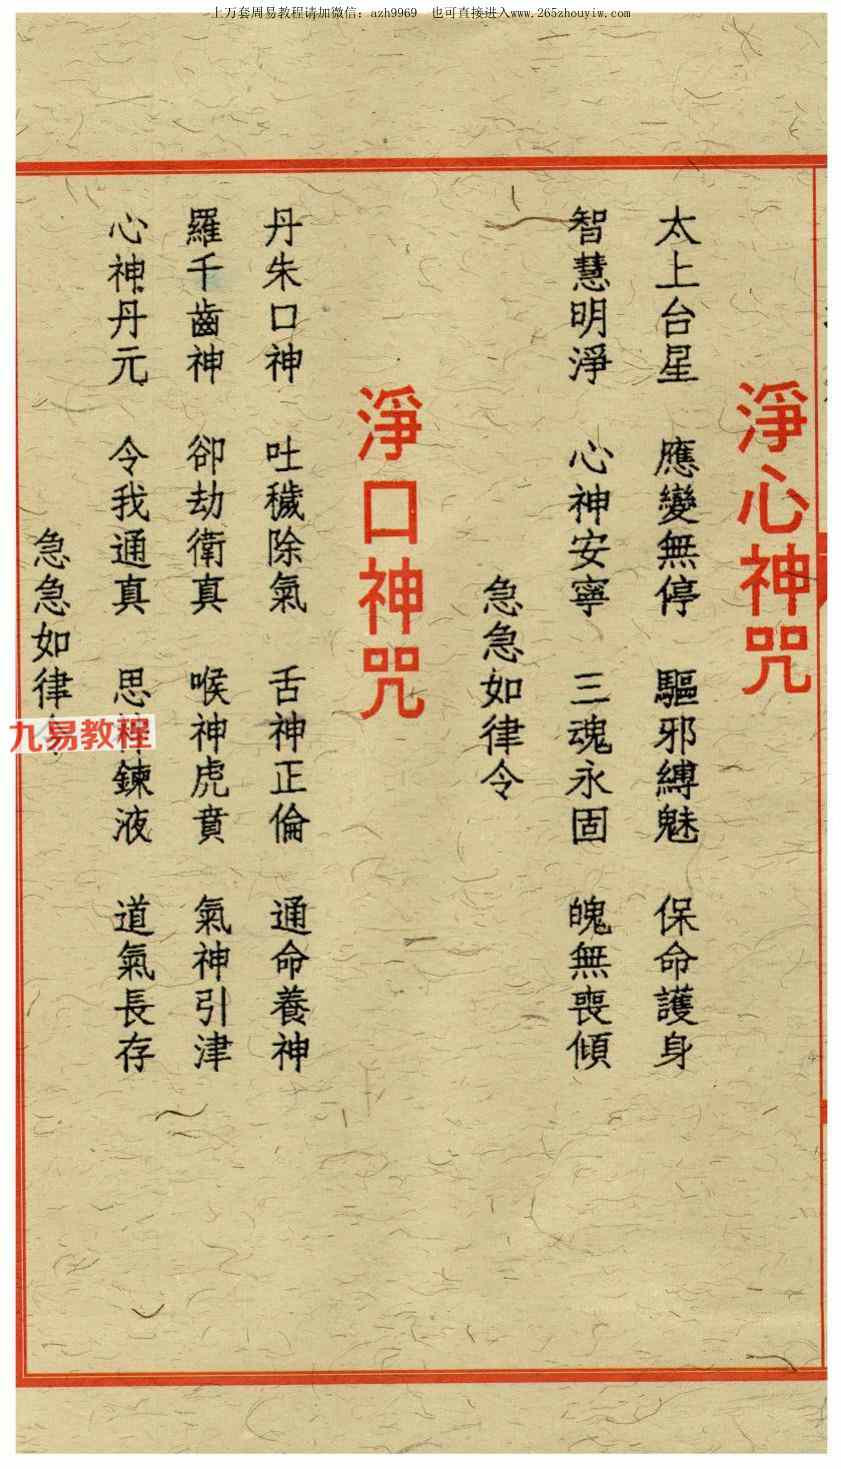 上万套周易教程请加微信：azh9969　也可直接进入www.265zhouyiw.com
淨心神咒
太上台星　應變無停　驅邪縛魅　保命護身
智慧明淨　心神安寧　三魂永固　魄無喪傾
急急如律令
淨口神咒
丹朱口神　吐穢除氣　舌神正倫　通命養神
羅千齒神　卻劫衛真　喉神虎賁　氣神引津
心神丹元　令我通真　思　鍊液　道氣長存
急急如律
九易教程